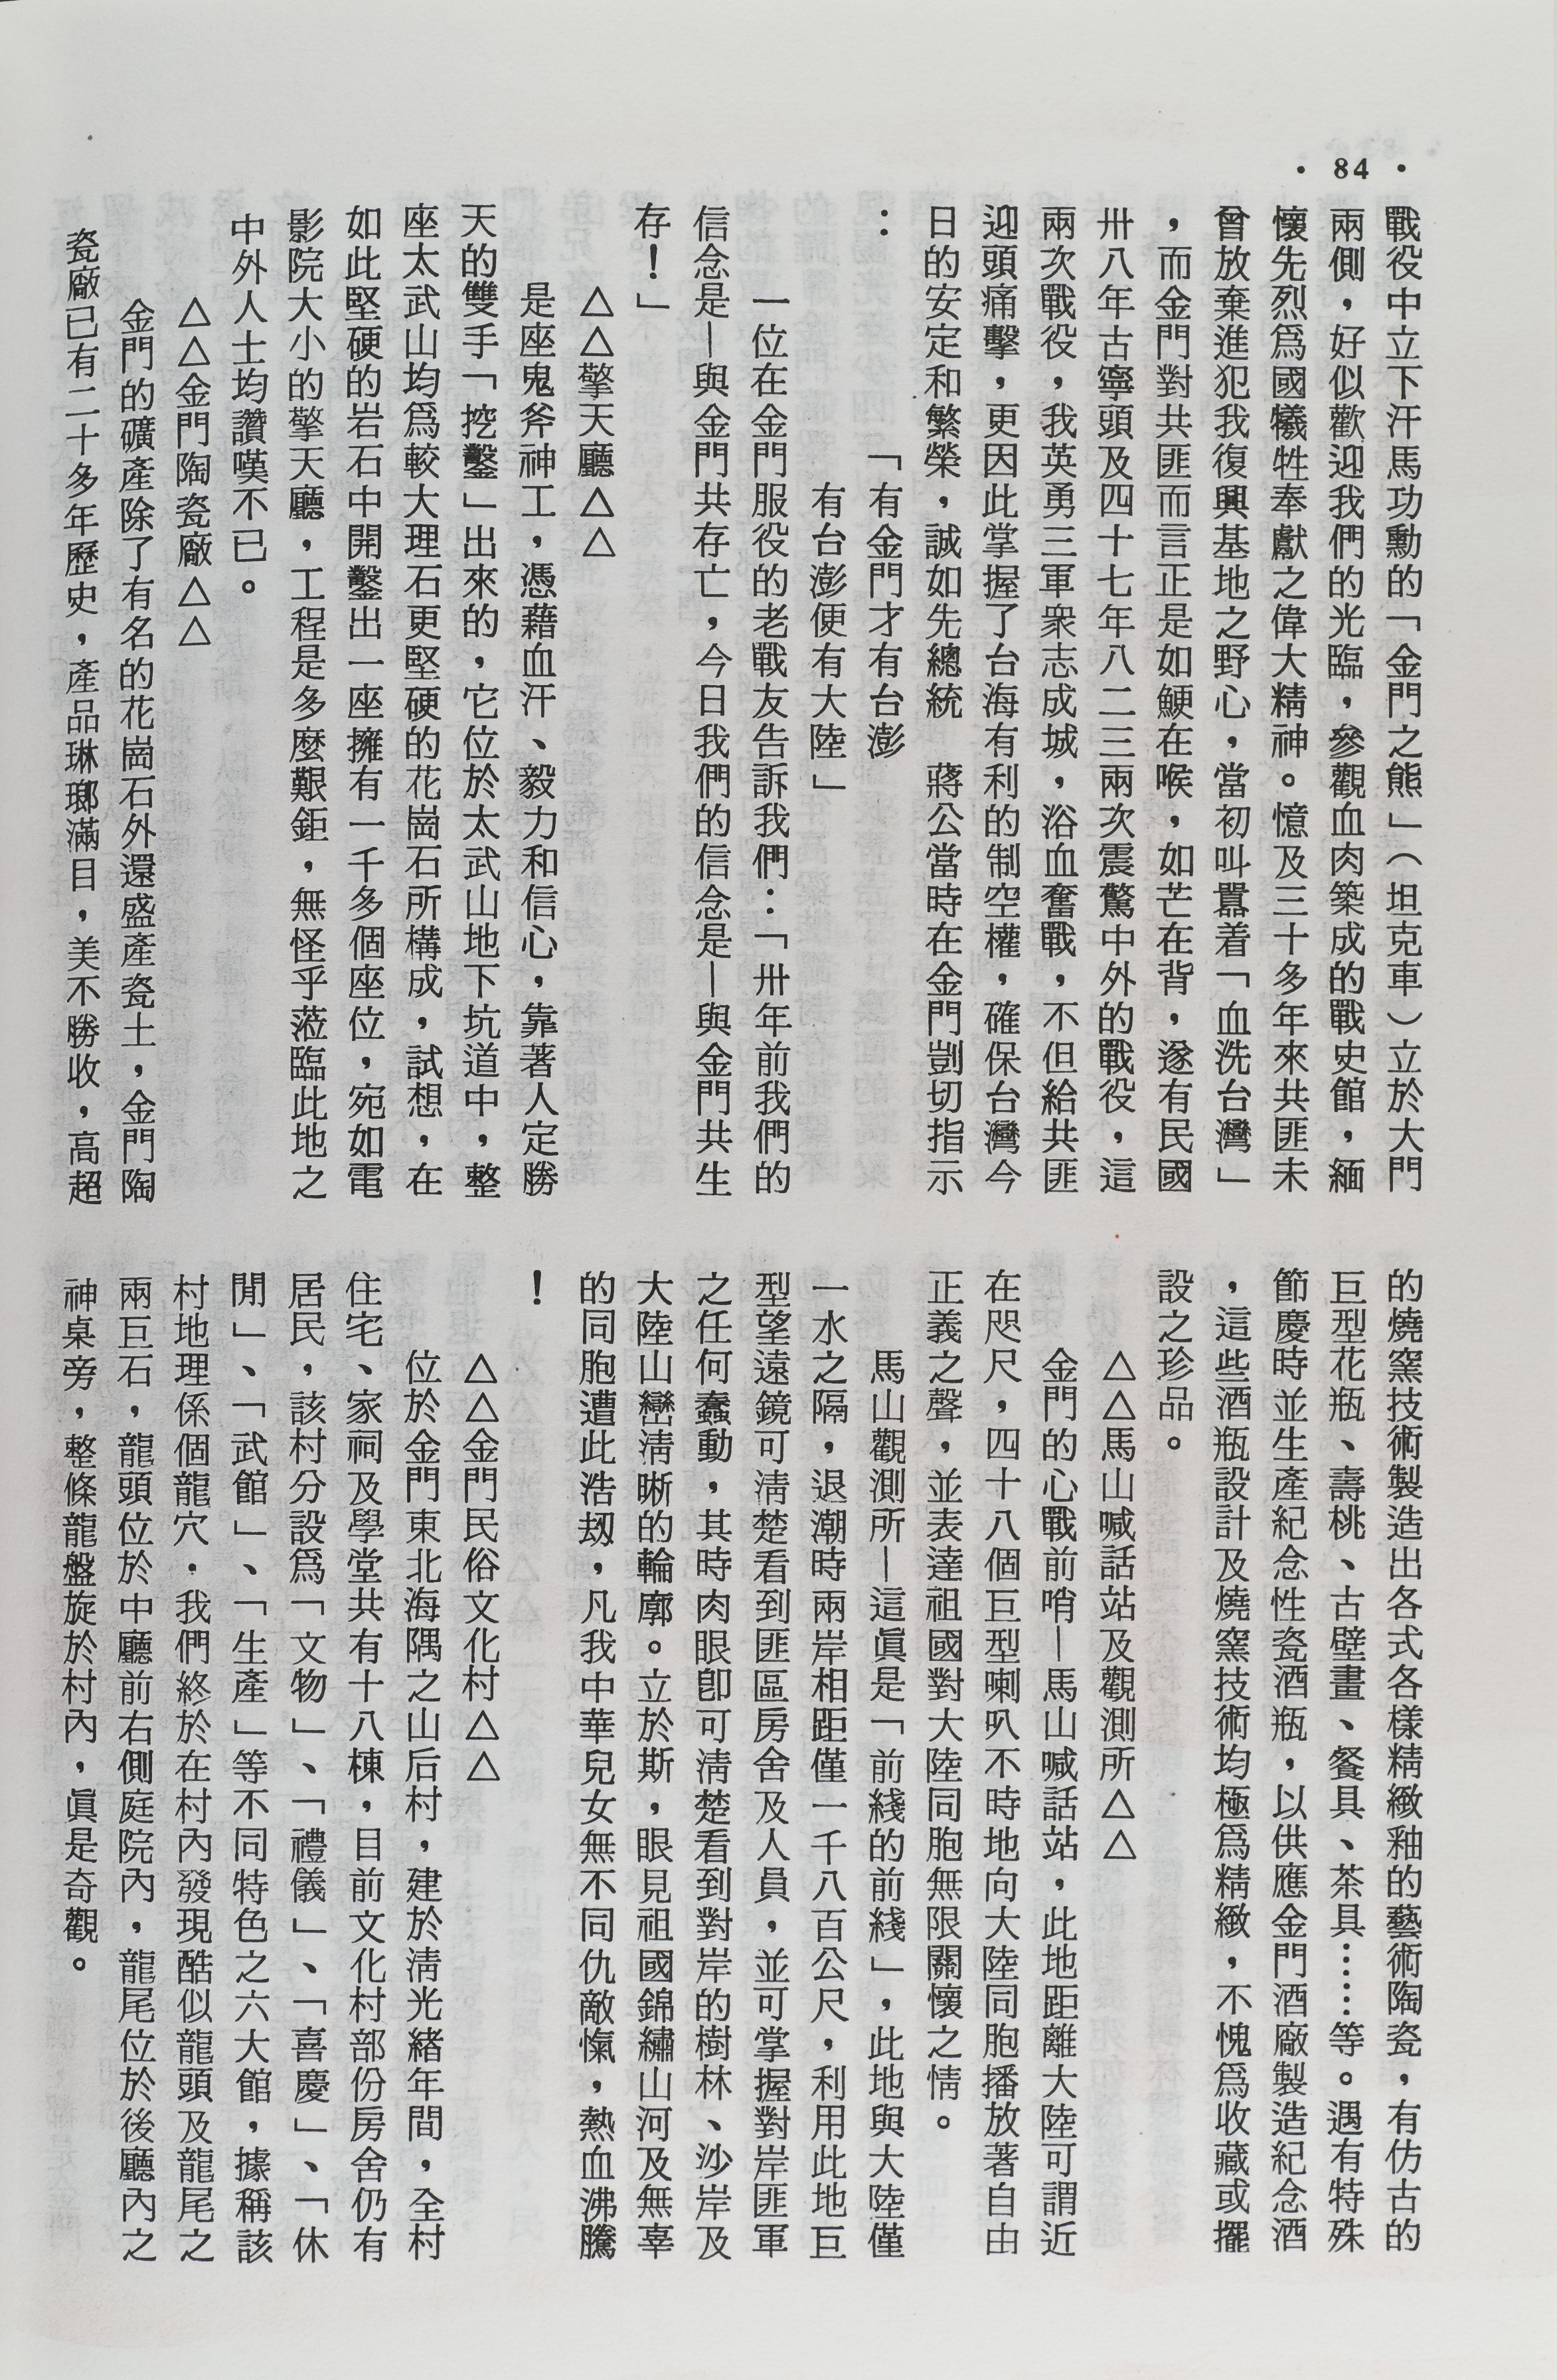 • 84 •
戰役中立下汗馬功勳的「金門之熊」（坦克車）立於大門
兩側，好似歡迎我們的光臨，參觀血肉築成的戰史館，緬
懷先烈爲國犧牲奉獻之偉大精神。憶及三十多年來共匪未
曾放棄進犯我復興基地之野心，當初叫囂着「血洗台灣」
，而金門對共匪而言正是如鯁在喉，如芒在背，遂有民國
卅八年古寧頭及四十七年八二三兩次震驚中外的戰役，這
兩次戰役，我英勇三軍衆志成城，浴血奮戰，不但給共匪
迎頭痛擊，更因此掌握了台海有利的制空權，確保台灣今
日的安定和繁榮，誠如先總統　蔣公當時在金門剴切指示
：
「有金門才有台澎
有台澎便有大陸」
一位在金門服役的老戰友告訴我們：「卅年前我們的
信念是—與金門共存亡，今日我們的信念是—與金門共生
存！」
△△擎天廳△△
是座鬼斧神工，憑藉血汗、毅力和信心，靠著人定勝
天的雙手「挖鑿」出來的，它位於太武山地下坑道中，整
座太武山均爲較大理石更堅硬的花崗石所構成，試想，在
如此堅硬的岩石中開鑿出一座擁有一千多個座位，宛如電
影院大小的擎天廳，工程是多麼艱鉅，無怪乎蒞臨此地之
中外人士均讚嘆不已。
△△金門陶瓷廠△△
金門的礦產除了有名的花崗石外還盛產瓷土，金門陶
瓷廠已有二十多年歷史，產品琳瑯滿目，美不勝收，高超
的燒窯技術製造出各式各樣精緻釉的藝術陶瓷，有仿古的
巨型花瓶、壽桃、古壁畫、餐具、茶具……等。遇有特殊
節慶時並生產紀念性瓷酒瓶，以供應金門酒廠製造紀念酒
，這些酒瓶設計及燒窯技術均極爲精緻，不愧爲收藏或擺
設之珍品。
△△馬山喊話站及觀測所△△
金門的心戰前哨—馬山喊話站，此地距離大陸可謂近
在咫尺，四十八個巨型喇叭不時地向大陸同胞播放著自由
正義之聲，並表達祖國對大陸同胞無限關懷之情。
馬山觀測所—這眞是「前綫的前綫」，此地與大陸僅
一水之隔，退潮時兩岸相距僅一千八百公尺，利用此地巨
型望遠鏡可淸楚看到匪區房舍及人員，並可掌握對岸匪軍
之任何蠢動，其時肉眼卽可淸楚看到對岸的樹林、沙岸及
大陸山巒淸晰的輪廓。立於斯，眼見祖國錦繡山河及無辜
的同胞遭此浩刼，凡我中華兒女無不同仇敵愾，熱血沸騰
！
△△金門民俗文化村△△
位於金門東北海隅之山后村，建於淸光緒年間，全村
住宅、家祠及學堂共有十八棟，目前文化村部份房舍仍有
居民，該村分設爲「文物」、「禮儀」、「喜慶」、「休
閒」、「武館」、「生產」等不同特色之六大館，據稱該
村地理係個龍穴．我們終於在村內發現酷似龍頭及龍尾之
兩巨石，龍頭位於中廳前右側庭院內，龍尾位於後廳內之
神桌旁，整條龍盤旋於村內，眞是奇觀。